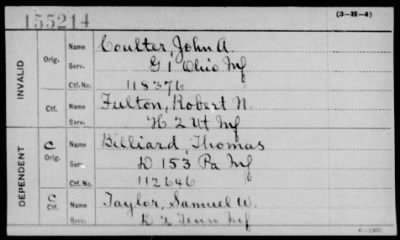 155214
(3-H-4)
INVALID
Orig. Name Coulter, John A.
Serv. G 1 Ohio Inf
Ctf. No. 118376
Ctf. Name Fulton, Robert N.
Serv. H 2 Inf
DEPENDENT
C Orig. Name Billiard, Thomas
Serv. D 153 Pa Inf
Ctf. No. 112646
C Ctf. Name Taylor, Samuel W.
Serv. D 2 Tenn Inf